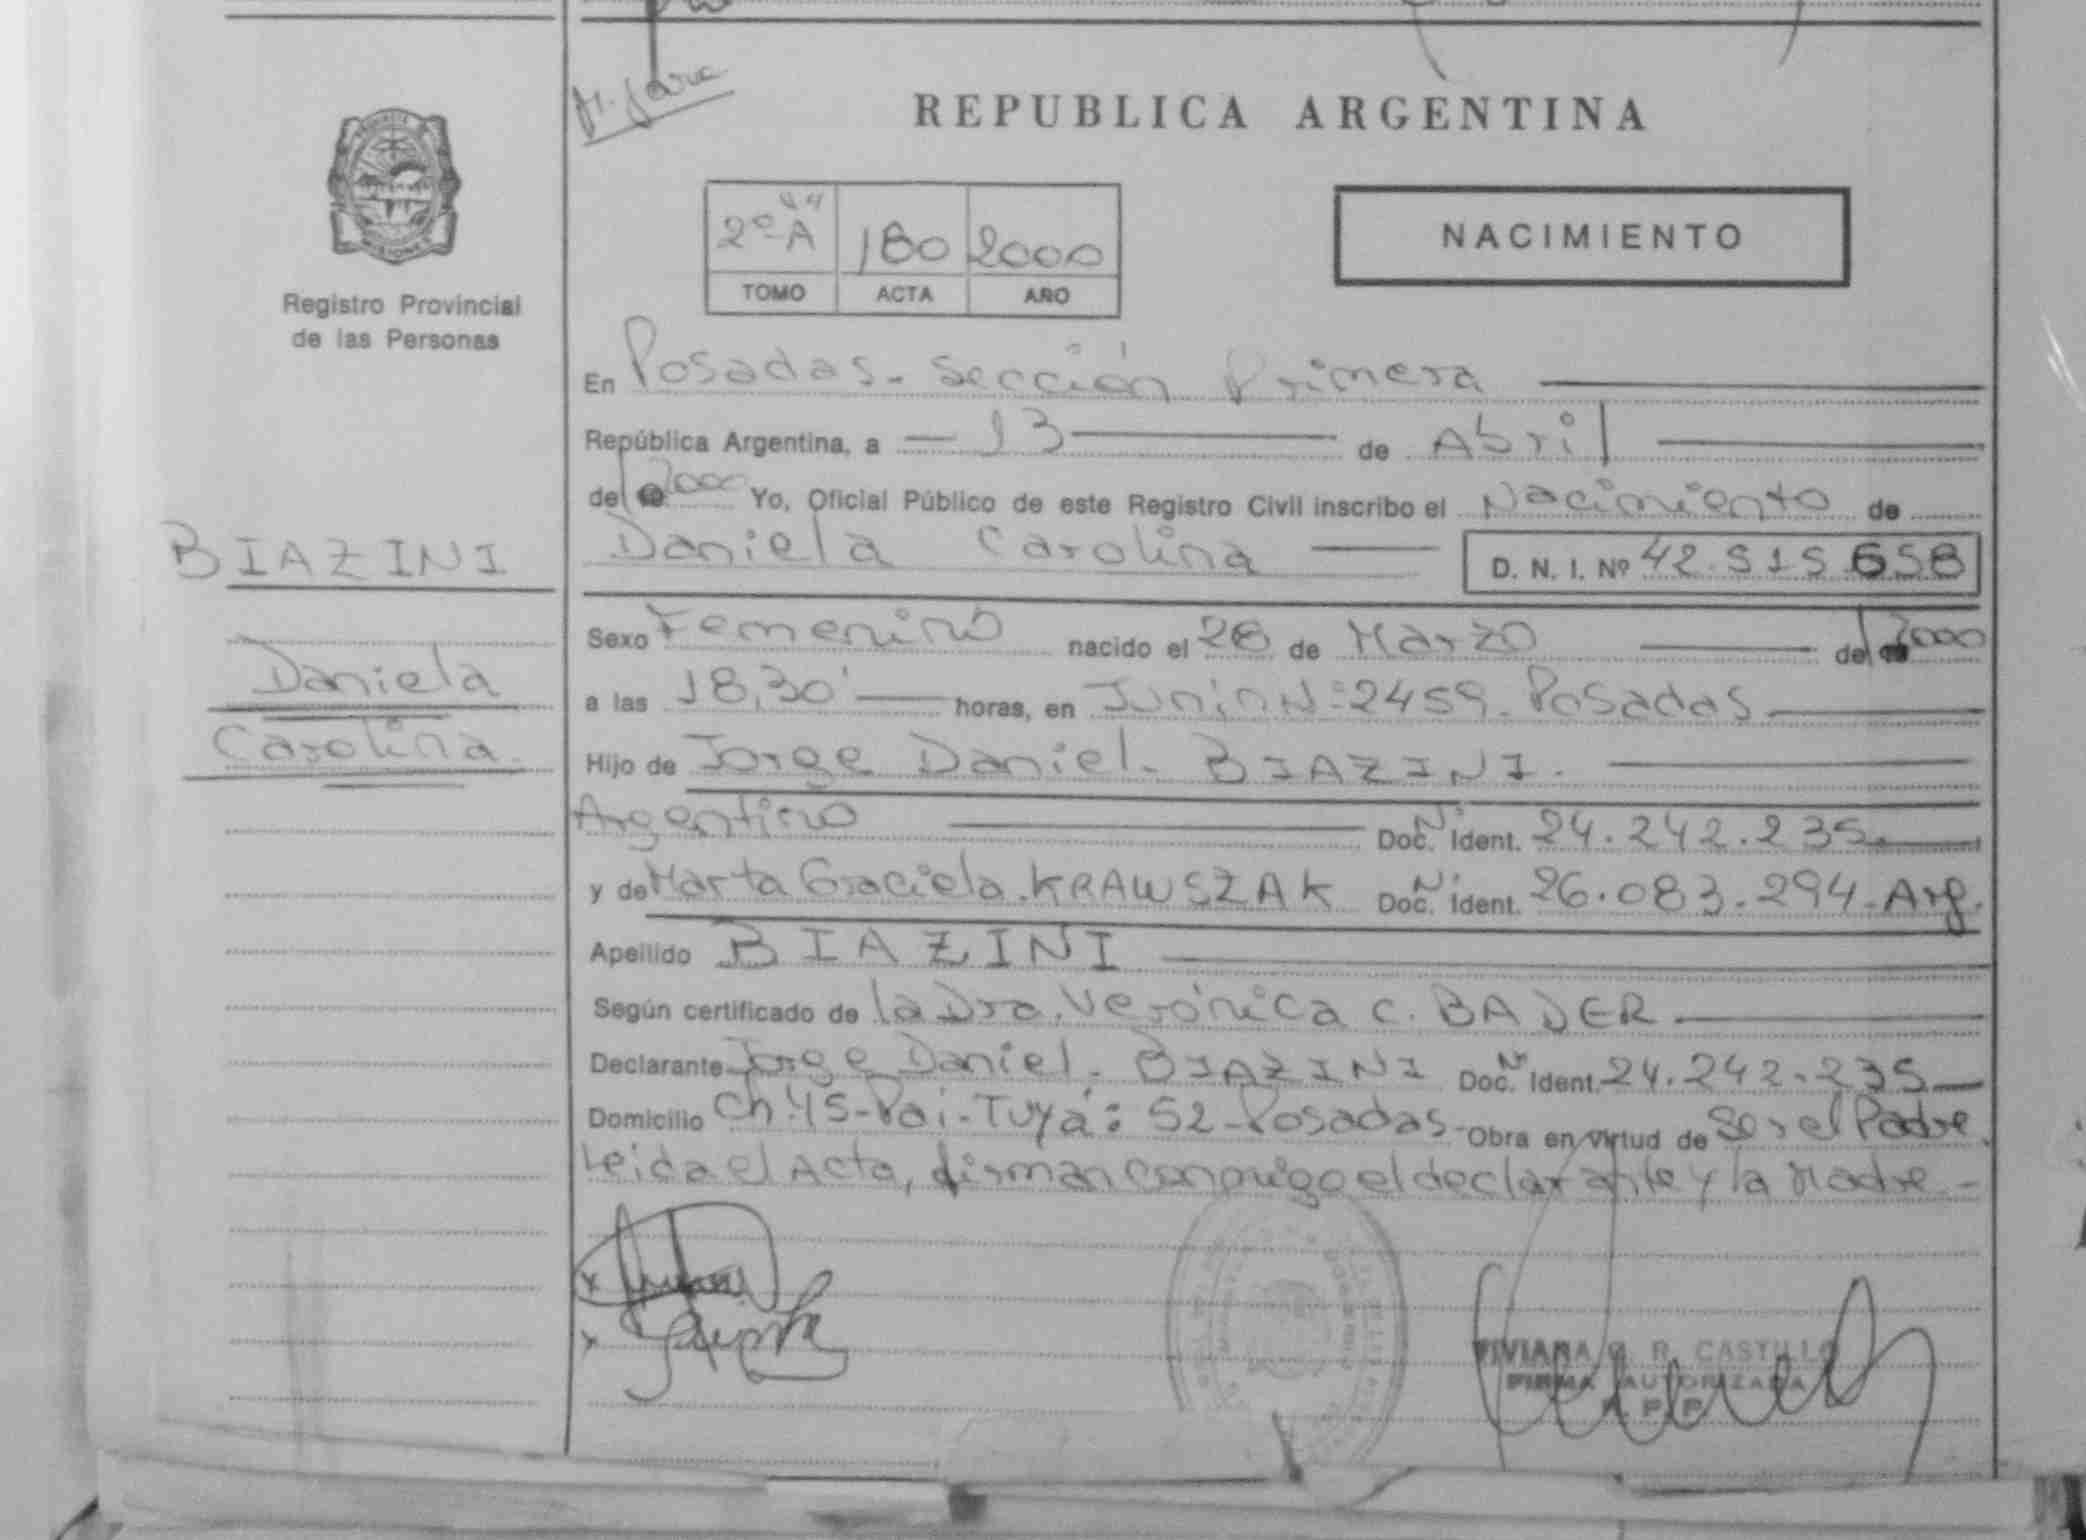 REPUBLICA ARGENTINA
Registro Provincial
de las Personas
2º A
180
2000
TOMO
ACTA
AÑO
NACIMIENTO
En Posadas - Sección Primera
República Argentina, a 13 de Abril
de 2000 Yo, Oficial Público de este Registro Civil inscribo el Nacimiento de
Daniela Carolina D. N. I. Nº 42.515.658
BIAZINI
Daniela
Carolina.
Sexo Femenino nacido el 28 de Marzo de 2000
a las 18,30' horas, en Junín Nº 2459 - Posadas
Hijo de Jorge Daniel - BIAZINI.
Argentino Doc. Nº Ident. 24.242.235.
y de Marta Graciela. KRAWSZAK Doc. Nº Ident. 26.083.294 - Arg.
Apellido BIAZINI
Según certificado de la Dra. Verónica C. BADER
Declarante Jorge Daniel - BIAZINI Doc. Nº Ident. 24.242.235
Domicilio Ch. 45 - Pai - Tuyá: 52 - Posadas - Obra en virtud de Ser el Padre.
Leida el Acta, firman conmigo el declarante y la Madre -
VIVIANA R. CASTILLO
FIRMA AUTORIZADA